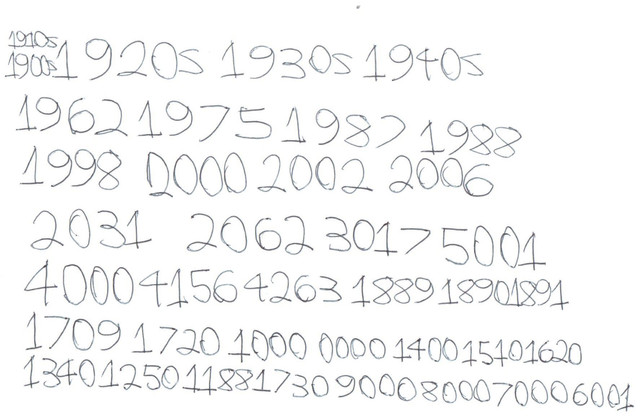 1910s
1900s 1920s 1930s 1940s
1962 1975 1987 1988
1998 0000 2002 2006
2031 2062 3017 5001
4000 4156 4263 1889 1890 1891
1709 1720 1000 0000 1400 1510 1620
1340 1250 1188 1730 9000 8000 7000 6001